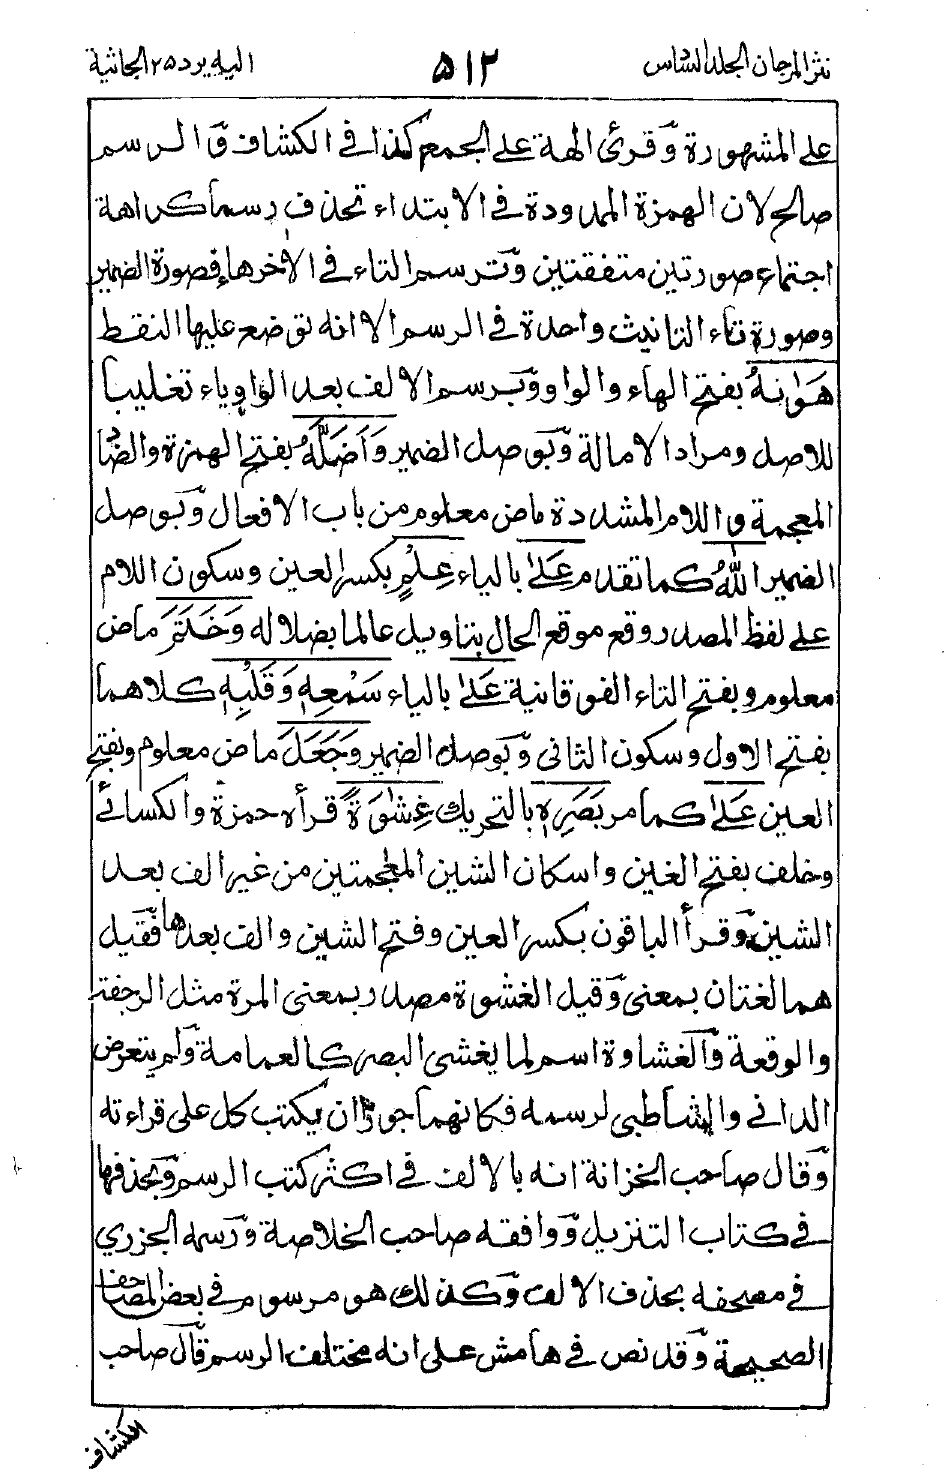 نثر المرجان الجلد السادس ٥١٢ اليه يرد ٢٥ الجاثية
على المشهورة وقرئ الهة على الجمع كذا في الكشاف والرسم
صالح لان الهمزة الممدودة في الابتداء تحذف رسما كراهة
اجتماع صورتين متفقتين وترسم التاء في الاخر هاء فصورة الضمير
وصورة تاء التانيث واحدة في الرسم الا انه توضع عليها النقط
هَوٰىهُ بفتح الهاء والواو وبرسم الالف بعد الواو ياء تغليبا
للاصل ومراد الامالة وبوصل الضمير وَاَضَلَّهُ بفتح الهمزة والضاد
المعجمة واللام المشددة ماض معلوم من باب الافعال وبوصل
الضمير اللّٰهُ كما تقدم عَلٰى بالياء عِلْمٍ بكسر العين وسكون اللام
على لفظ المصدر وقع موقع الحال بتاويل عالما بضلاله وَخَتَمَ ماض
معلوم وبفتح التاء الفوقانية عَلٰى بالياء سَمْعِهٖ وَقَلْبِهٖ كلاهما
بفتح الاول وسكون الثاني وبوصل الضمير وَجَعَلَ ماض معلوم وبفتح
العين عَلٰى كما مر بَصَرِهٖ بالتحريك غِشٰوَةً قرأه حمزة والكسائے
وخلف بفتح الغين واسكان الشين المعجمتين من غير الف بعد
الشين وقرأ الباقون بكسر العين وفتح الشين والف بعدها فقيل
هما لغتان بمعنى وقيل الغشوة مصدر بمعنى المرة مثل الرجفة
والوقعة والغشاوة اسم لما يغشى البصر كالعمامة ولم يتعرض
الدانے والشاطبي لرسمه فكانهما جوزا ان يكتب كل على قراءته
وقال صاحب الخزانة انه بالالف في اكثر كتب الرسم وبحذفها
في كتاب التنزيل ووافقه صاحب الخلاصة ورسمه الجزري
في مصحفه بحذف الالف وكذلك هو مرسوم في بعض المصاحف
الصحيحة وقد نص في هامش على انه مختلف الرسم قال صاحب
الكشاف